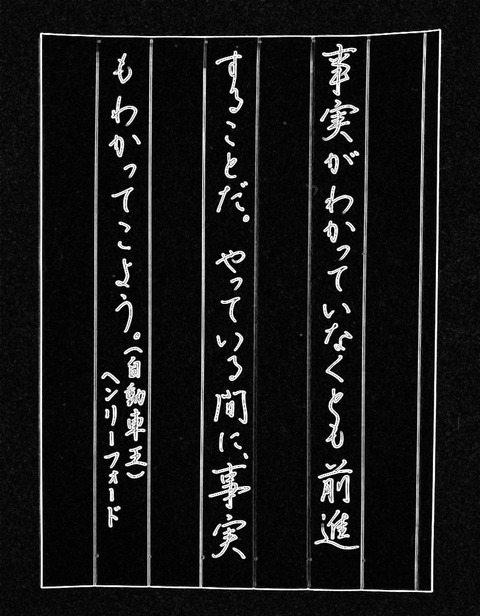 事実がわかっていなくとも前進
することだ。やっている間に、事実
もわかってこよう。(自動車王)
ヘンリーフォード